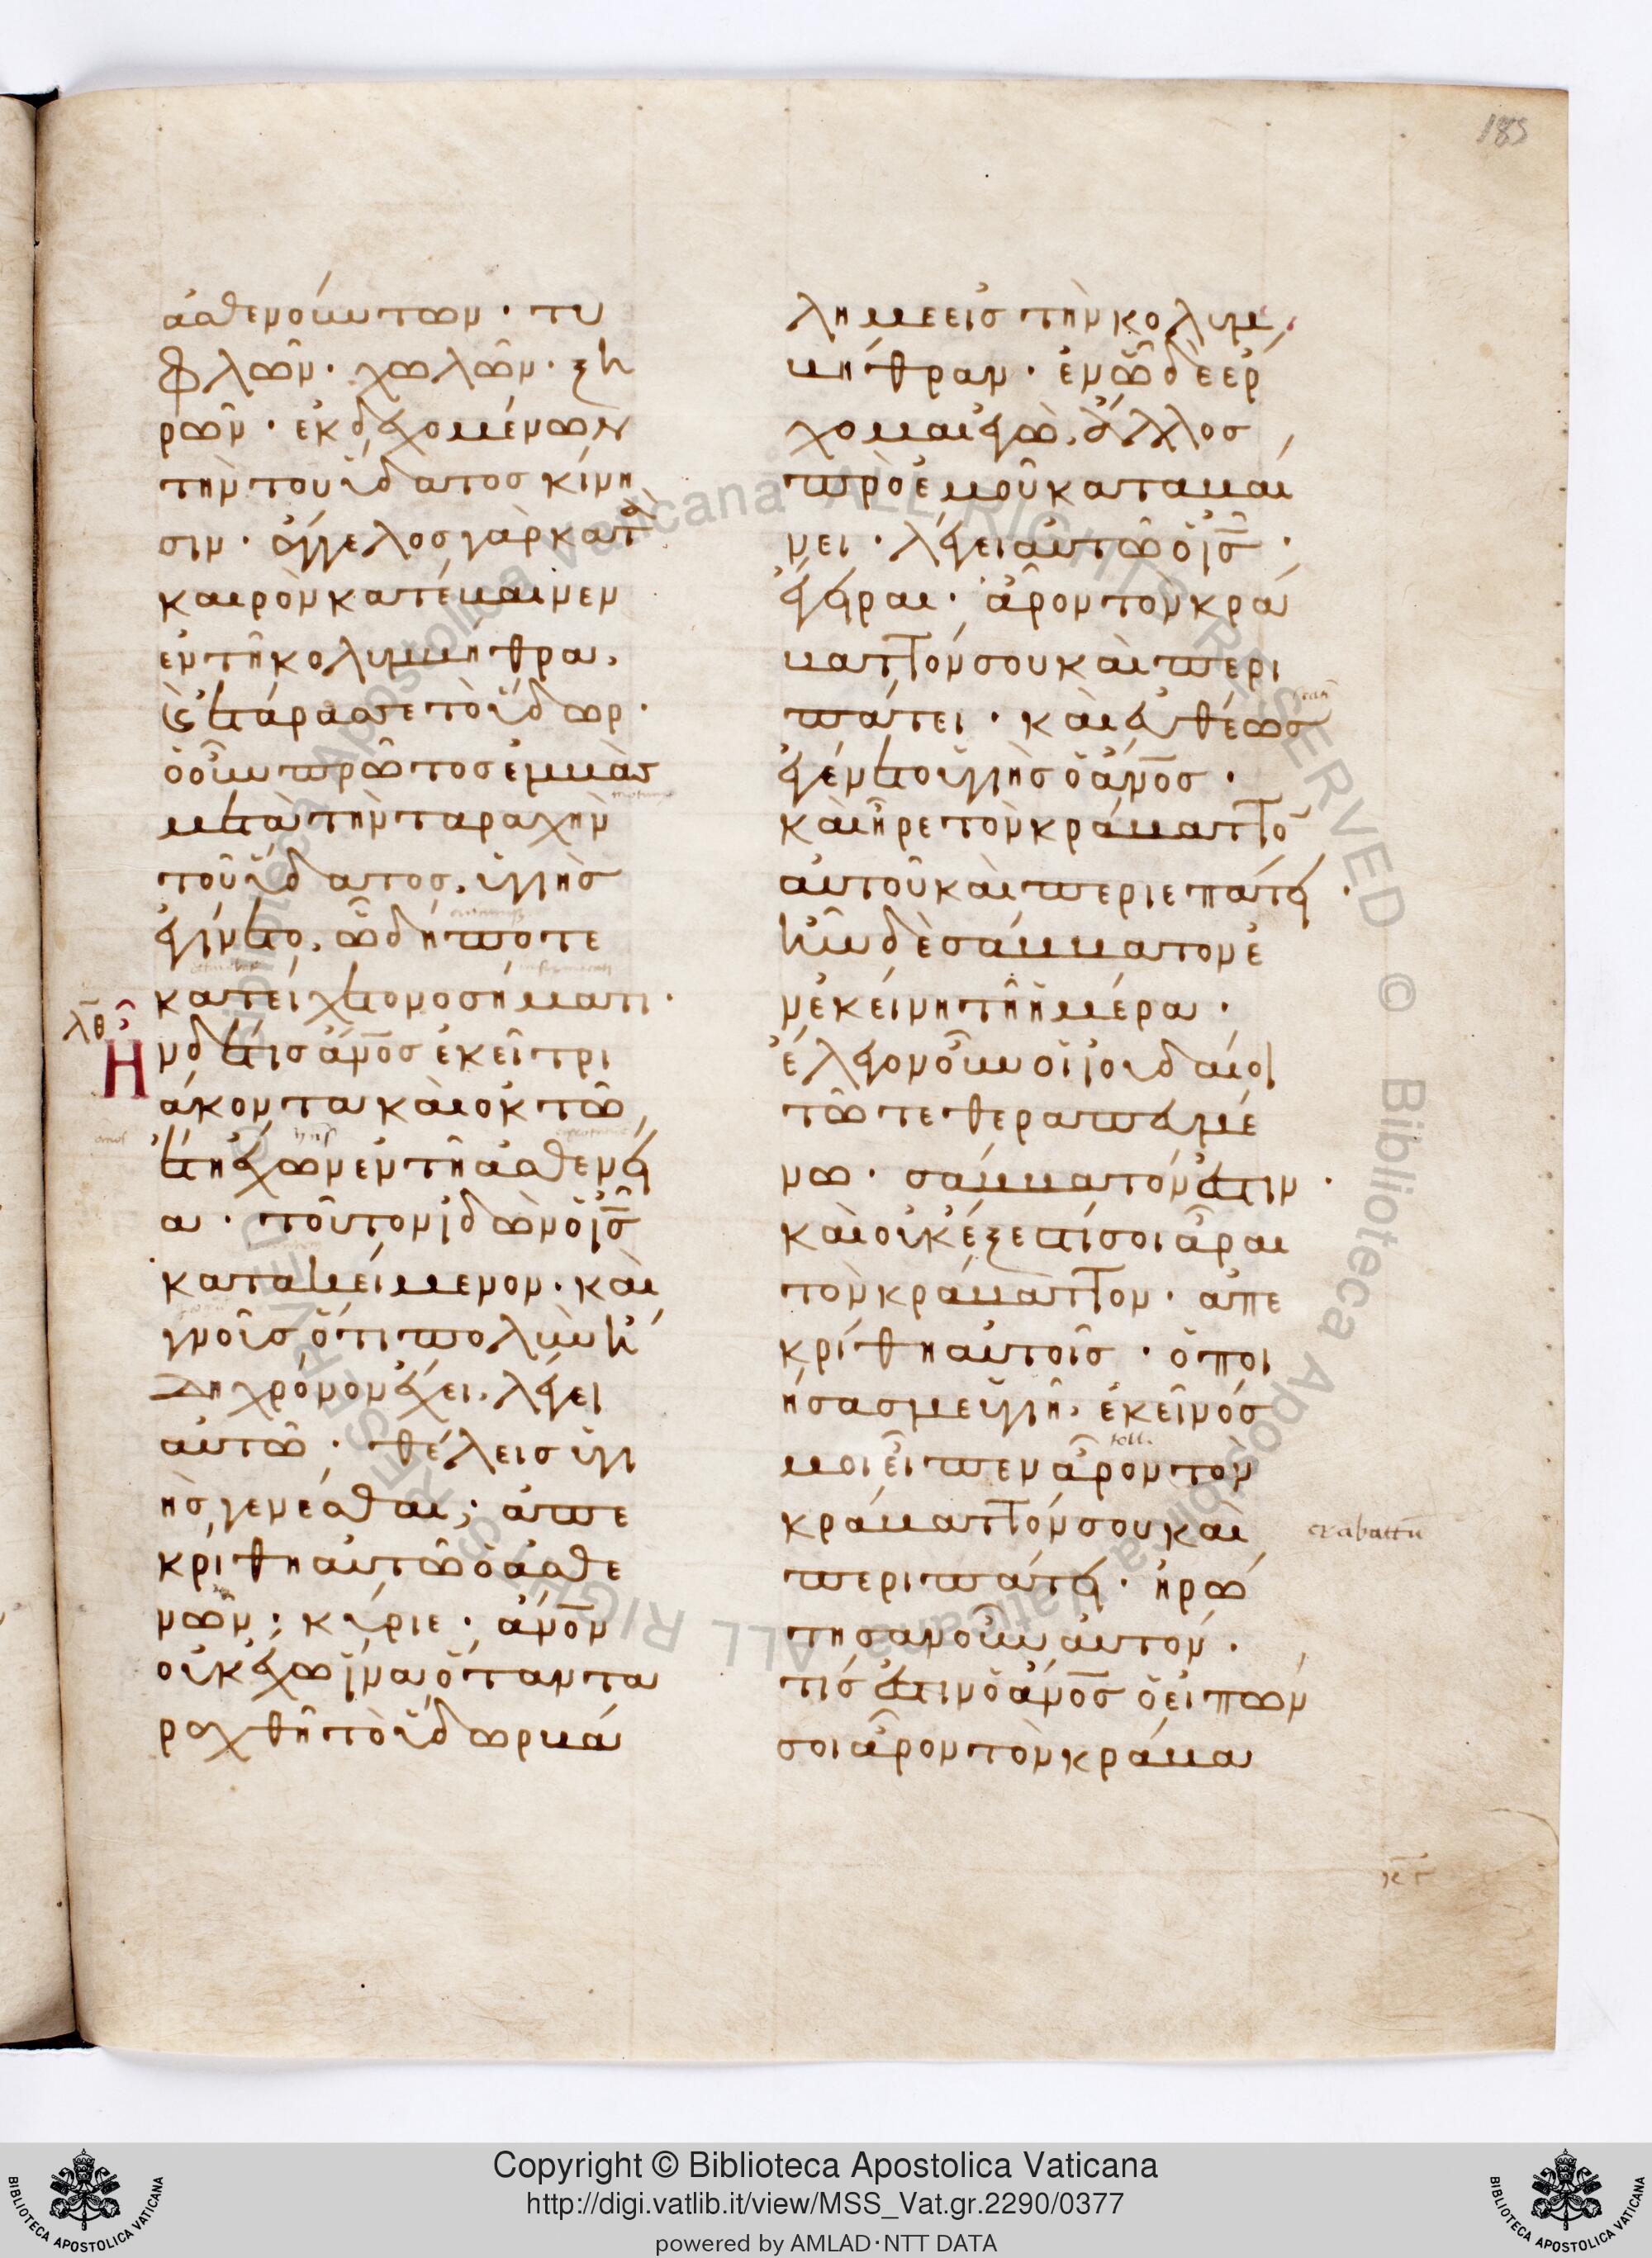 185
ἀσθενούντων · τυ
φλῶν · χωλῶν · ξη
ρῶν · ἐκδεχομένων
τὴν τοῦ ὕδατος κίνη
σιν · ἄγγελος γὰρ κατὰ
καιρὸν κατέβαινεν
ἐν τῆ κολυμβήθρα,
καὶ ἐτάρασσε τὸ ὕδωρ ·
ὁ οὖν πρῶτος ἐμβὰς
μετὰ τὴν ταραχὴν
τοῦ ὕδατος, ὑγιὴς
ἐγίνετο, ὧ δήποτε
κατείχετο νοσήματι ·
λθ
Ἦν δέ τις ἄνος ἐκεῖ τρι
άκοντα καὶ ὀκτὼ
ἔτη ἔχων ἐν τῆ ἀσθενεί
α · τοῦτον ἰδὼν ὁ ις
κατακείμενον · καὶ
γνοὺς ὅτι πολὺν ἤ
δη χρόνον ἔχει, λέγει
αὐτῶ · θέλεις ὑγι
ὴς γενέσθαι; ἀπε
κρίθη αὐτῶ ὁ ἀσθε
νῶν; κύριε · ἄνον
οὐκ ἔχω ἵνα ὅταν τα
ραχθῆ τὸ ὕδωρ βά
λη με εἰς τὴν κολυμ
βήθραν · ἐν ὧ δὲ ἔρ
χομαι ἐγὼ, ἄλλος
πρὸ ἐμοῦ καταβαί
νει · λέγει αὐτῶ ὁ ις ·
ἔγειραι · ἆρον τὸν κρά
βαττόν σου καὶ περι
πάτει · καὶ εὐθέως
ἐγένετο ὑγιὴς ὁ ἄνος ·
καὶ ἦρε τὸν κράβαττο
αὐτοῦ καὶ περιεπάτει ·
ἦν δὲ σάββατον ἐ
ν ἐκείνη τῆ ἡμέρα ·
ἔλεγον οὖν οἱ ἰουδαῖοι
τῶ τεθεραπευμέ
νω · σάββατόν ἐστιν ·
καὶ οὐκ ἔξεστί σοι ἆραι
τὸν κράβαττον · ἀπε
κρίθη αὐτοῖς · ὁ ποι
ήσας με ὑγιῆ, ἐκεῖνός
μοι εἶπεν ἆρον τὸν
κράβαττόν σου καὶ
crabattū
περιπάτει · ἠρώ
τησαν οὖν αὐτόν ·
τίς ἐστιν ὁ ἄνος ὁ εἰπών
σοι ἆρον τὸν κράβα
Copyright © Biblioteca Apostolica Vaticana
http://digi.vatlib.it/view/MSS_Vat.gr.2290/0377
powered by AMLAD·NTT DATA